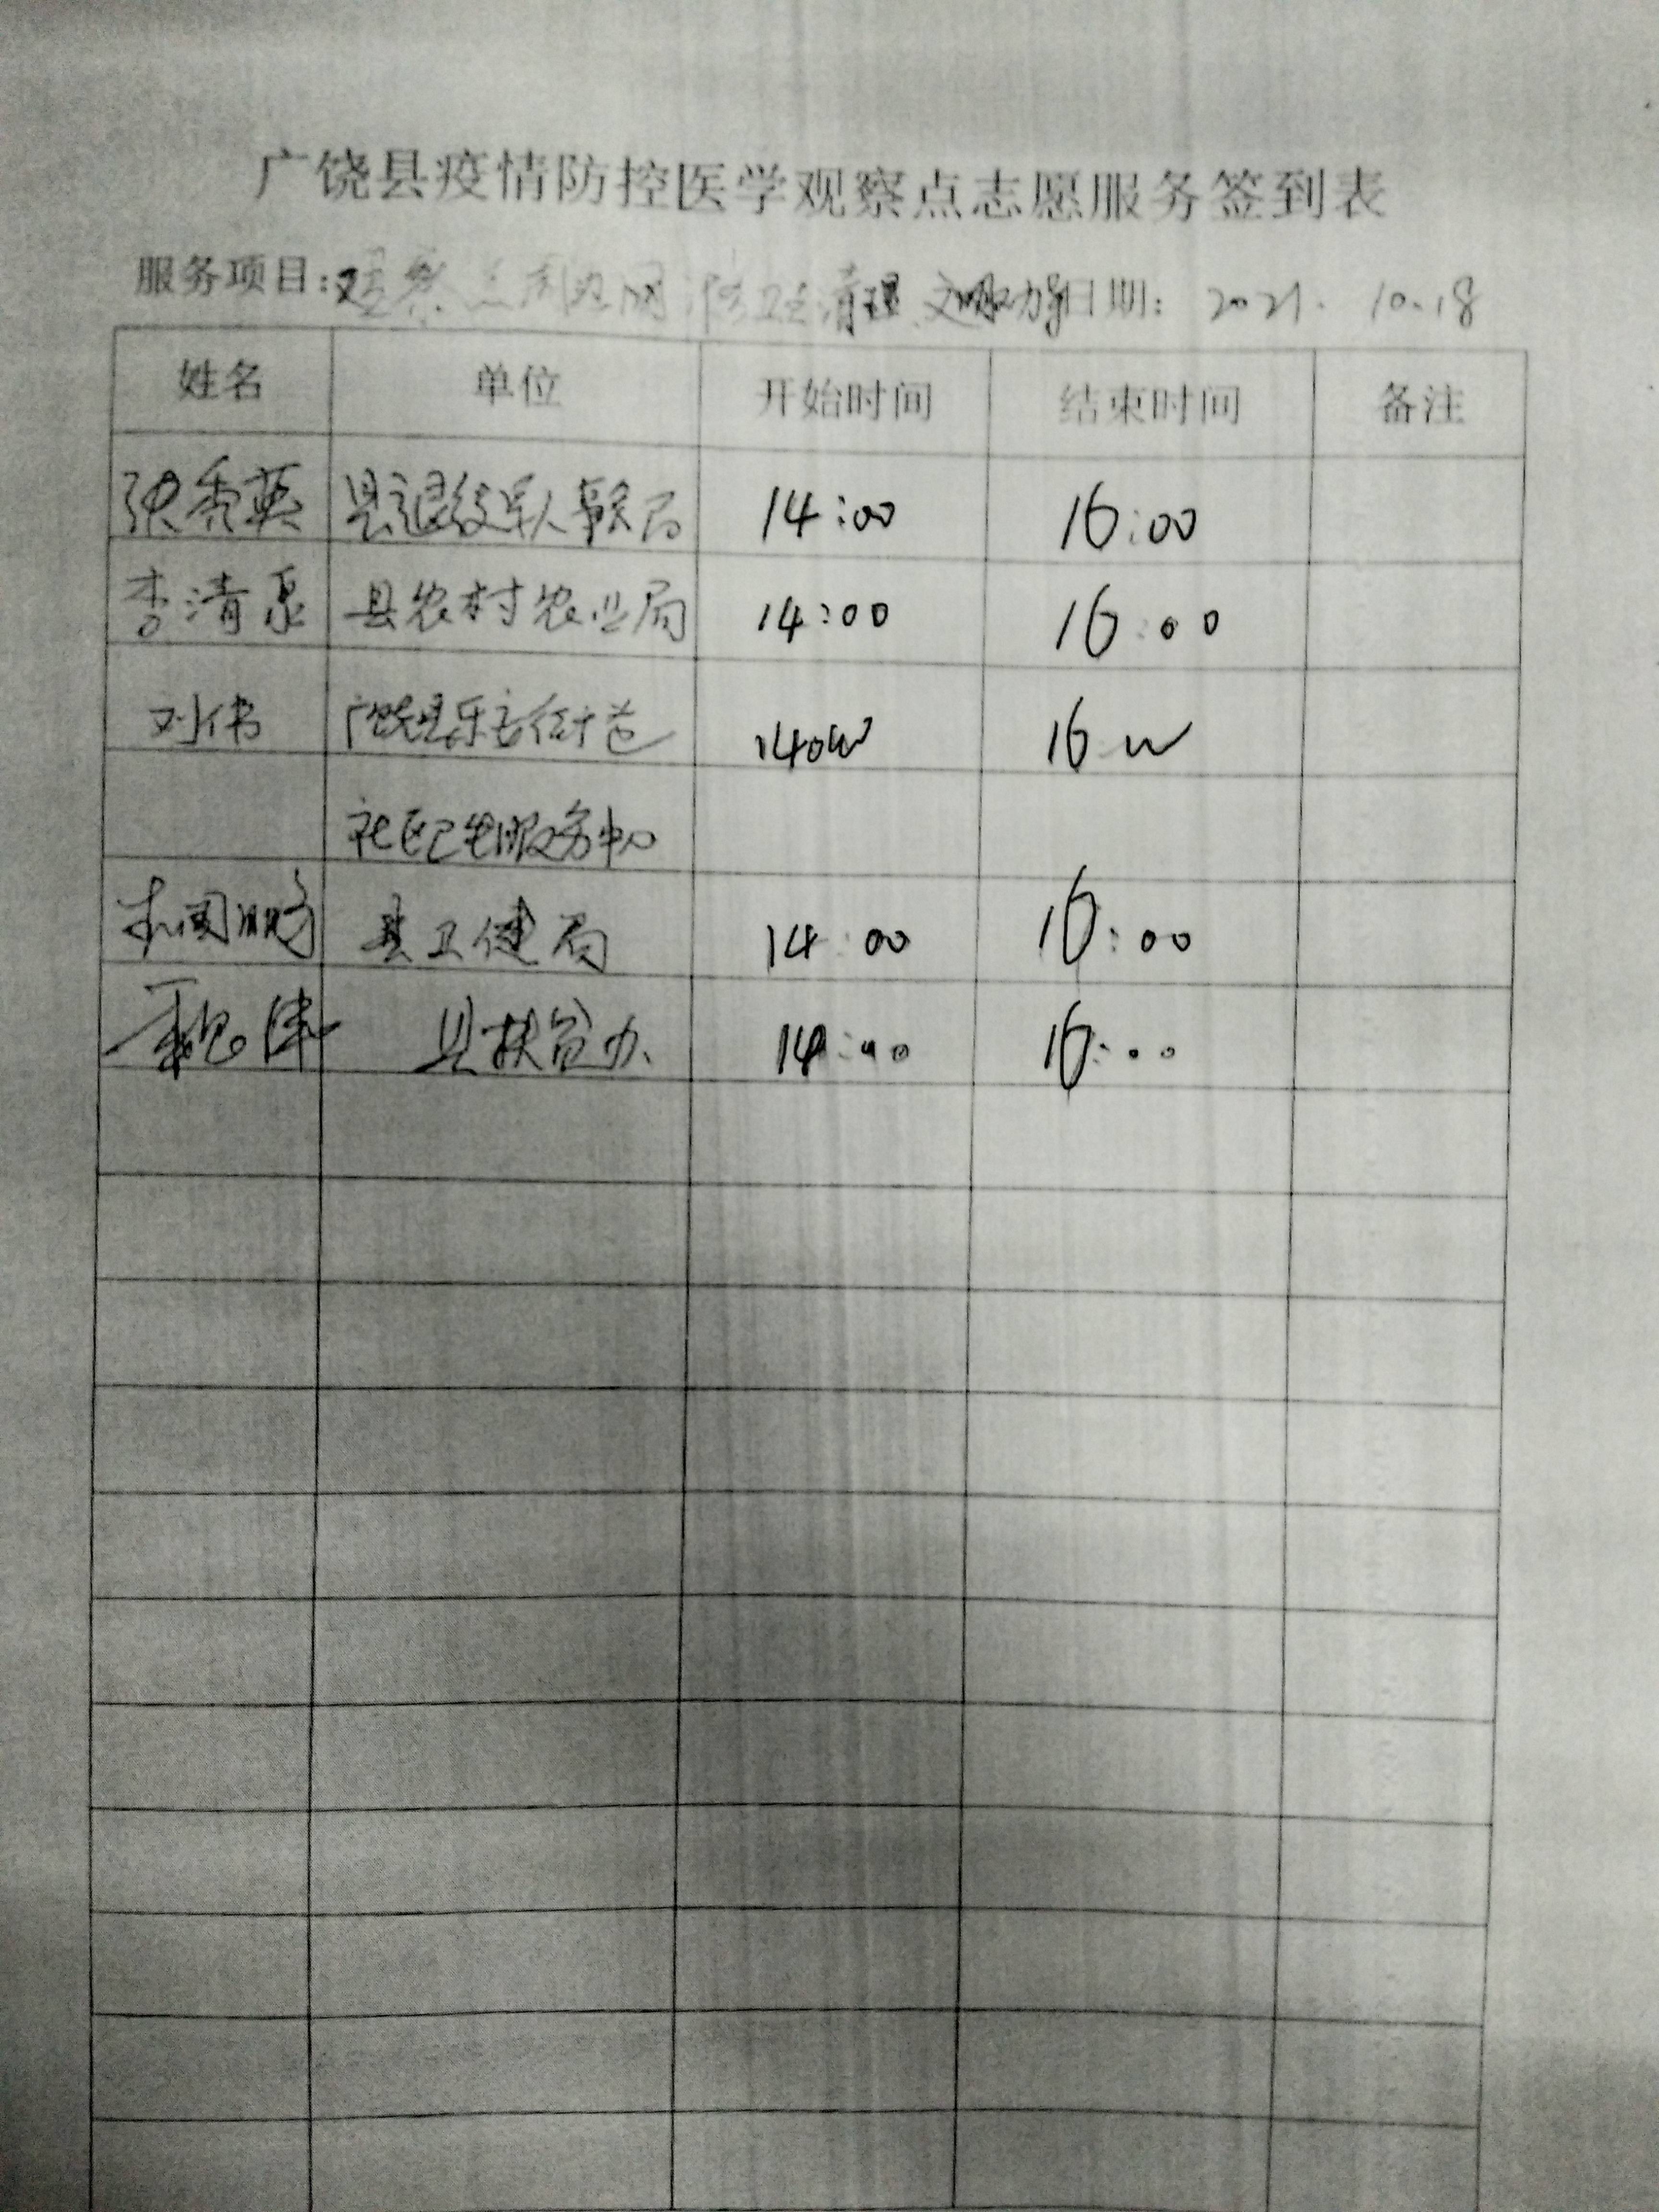 广饶县疫情防控医学观察点志愿服务签到表
服务项目: 清理 文明 日期: 2021. 10.18
姓名 单位 开始时间 结束时间 备注
张秀英 县退役军人事务局 14:00 16:00
李清泉 县农村农业局 14:00 16:00
刘伟 广饶县乐安街道 1400 16 00
社区卫生服务中心
县卫健局 14:00 16:00
魏涛 县扶贫办 14:00 16:00